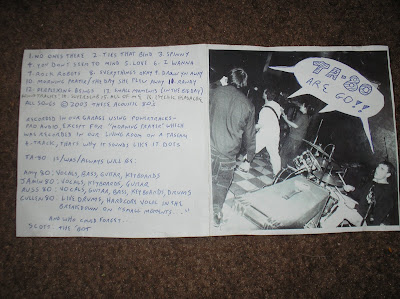 1. NO ONES THERE 2. TIES THAT BIND 3. SPINNY
4. YOU DON'T SEEM TO MIND 5. LOVE 6. I WANNA
7. ROCK ROBOTS 8. EVERYTHINGS OKAY 9. DRAW YOU AWAY
10. MORNING PRAYER/THE DAY SHE FLEW AWAY 11. AWAY
12. DEPRESSING BEINGS 13. SMALL MOMENTS (IN THE BIG DAY)
ALL SONGS © 2003 THEIR ACOUSTIC 80S
RECORDED IN OUR GARAGE USING POWERTRACKS-
PRO AUDIO, EXCEPT FOR "MORNING PRAYER" WHICH
WAS RECORDED IN OUR LIVING ROOM ON A TASCAM
4-TRACK, THATS WHY IT SOUNDS LIKE IT DOES
TA-80 IS/WAS/ALWAYS WILL BE:
AMY 80: VOCALS, BASS, GUITAR, KEYBOARDS
80: VOCALS, KEYBOARDS, GUITAR
RUSS 80: VOCALS, GUITAR, BASS, KEYBOARDS, DRUMS
CULLEN 80: LIVE DRUMS, HARDCORE VOCAL IN THE
BREAKDOWN ON "SMALL MOMENTS..."
AND WHO COULD FORGET...
SCOTT THE 'BOT
TA-80
ARE GO!!